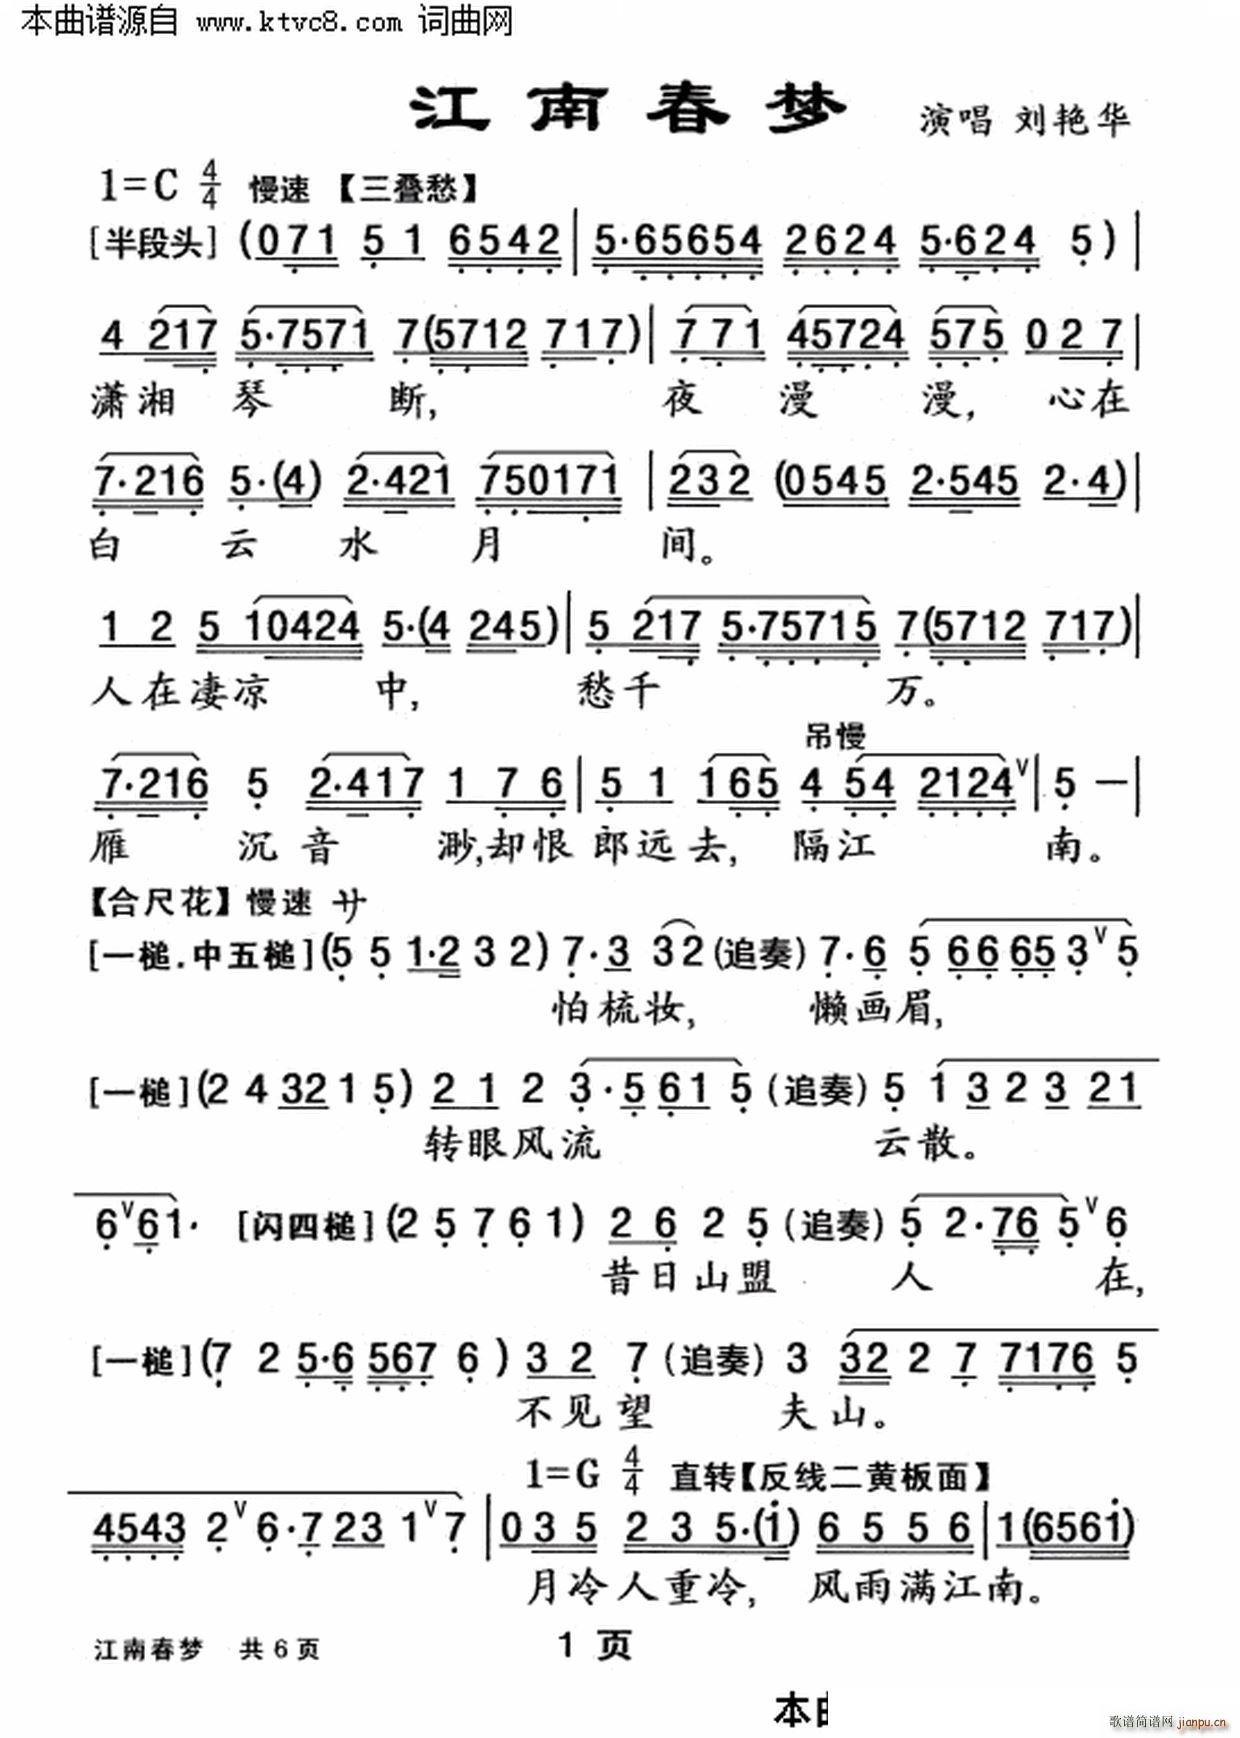 本曲谱源自 www.ktvc8.com 词曲网
江南春梦 演唱 刘艳华
1=C 4/4 慢速 【三叠愁】
[半段头] (071 51 6542 | 5·65654 2624 5·624 5) |
4 217 5·7571 7(5712 717) | 771 45724 575 027
潇湘琴断, 夜漫漫, 心在
7·216 5·(4) 2·421 750171 | 232 (0545 2·545 2·4) |
白云水月间。
12 5 10424 5·(4 245) | 5 217 5·75715 7(5712 717) |
人在凄凉中, 愁千万。
吊慢
7·216 5 2·417 176 | 51 165 4 54 2124 ∨ | 5 — |
雁沉音渺,却恨郎远去, 隔江南。
【合尺花】慢速 サ
[一槌.中五槌] (5 5 1·2 3 2) 7·3 32 (追奏) 7·6 5 66 65 3 ∨ 5
怕梳妆, 懒画眉,
[一槌] (2 4 32 1 5) 2 1 2 3·5 61 5 (追奏) 5 1 3 2 3 21
转眼风流云散。
6 ∨ 61· [闪四槌] (2 5 7 6 1) 2 6 2 5 (追奏) 5 2·76 5 ∨ 6
昔日山盟人在,
[一槌] (7 2 5·6 567 6) 3 2 7 (追奏) 3 32 2 7 7176 5
不见望夫山。
1=G 4/4 直转【反线二黄板面】
4543 2 ∨ 6·7 23 1 ∨ 7 | 035 235·(i) 6556 | 1(656i)
月冷人重冷, 风雨满江南。
江南春梦 共6页 1 页
本曲
歌谱简谱网 jianpu.cn